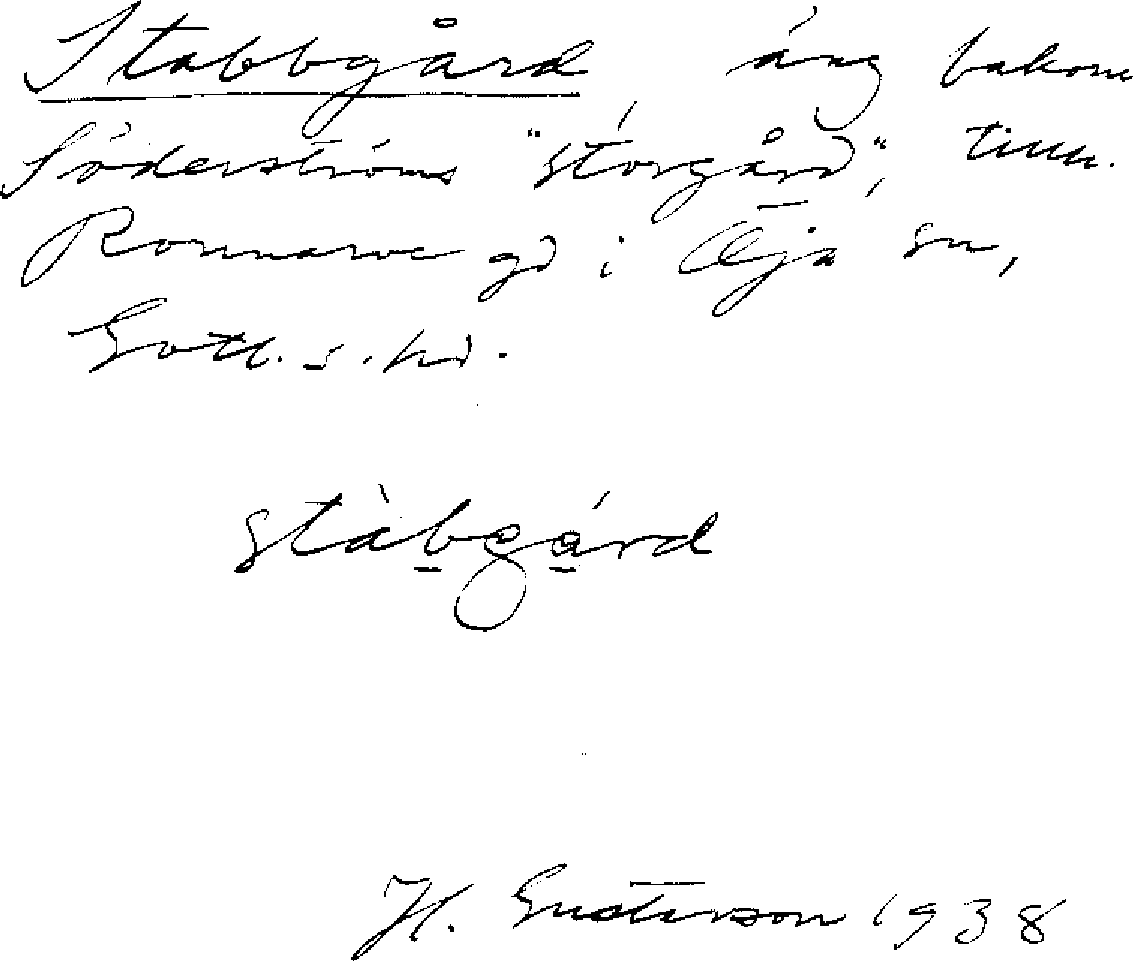 Stabbgård äng bakom
Söderströms "störgård", tillh.
Ronnarve gd i Öja sn,
Gotl. s. hd.
stàbgárd
H. Gustavson 1938